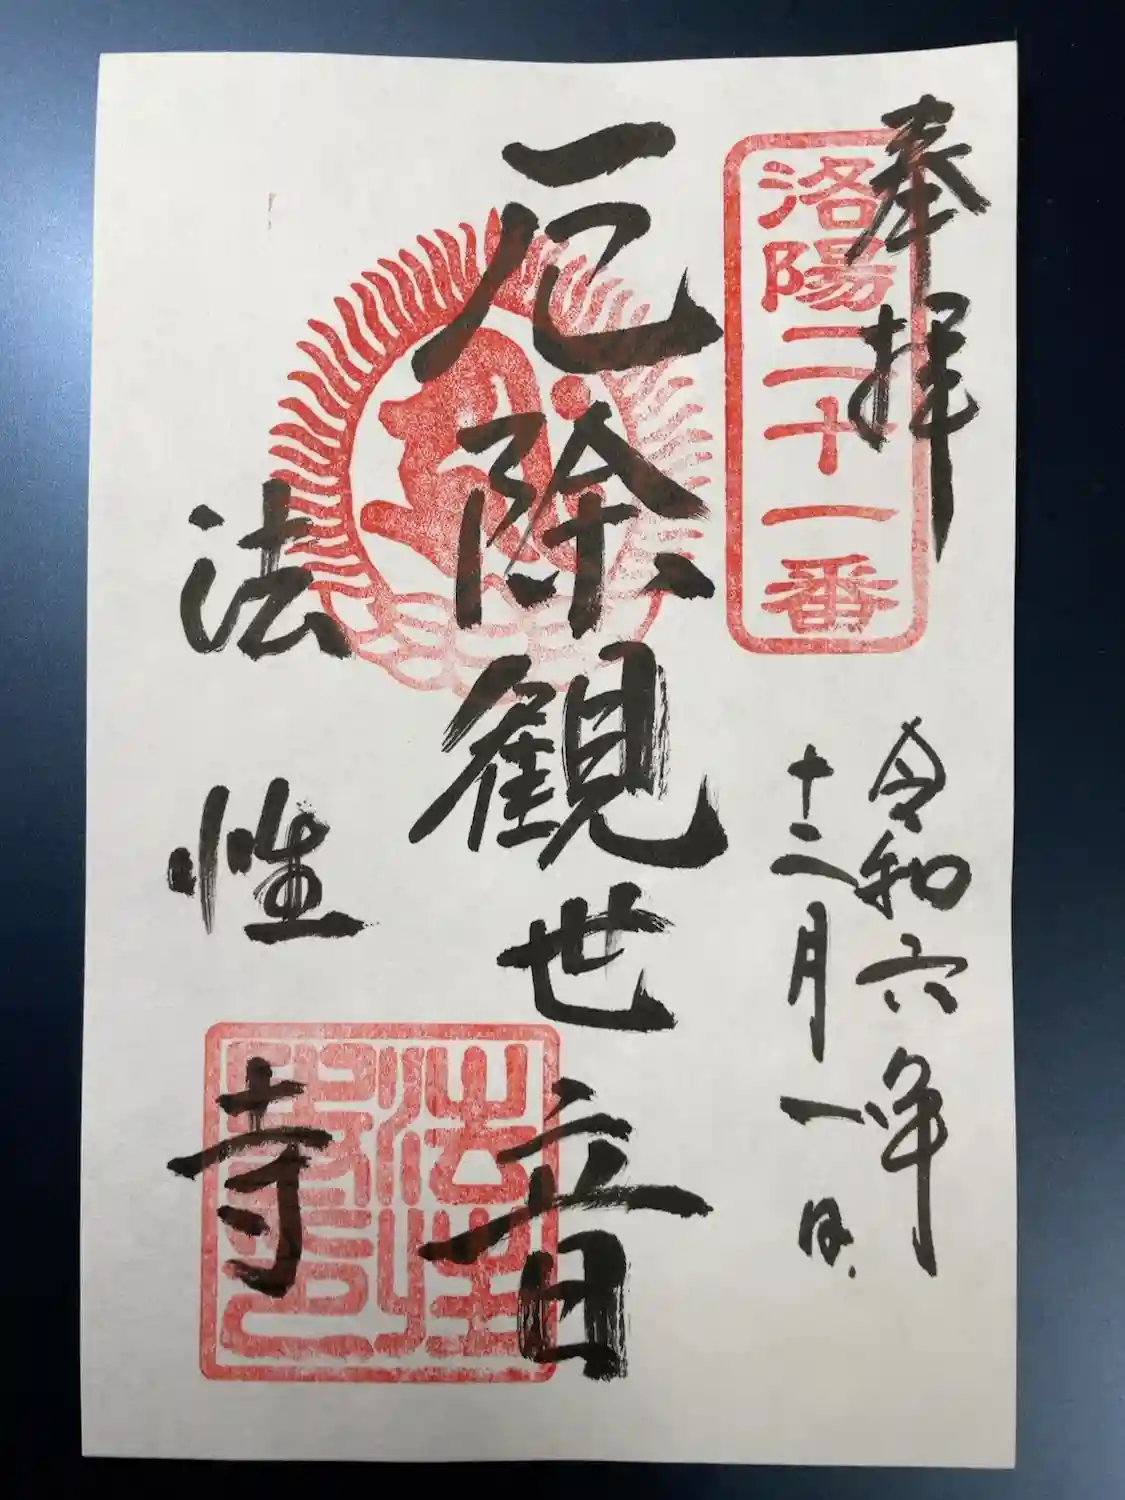 奉拝
洛陽二十一番
令和六年
十二月一日
厄除観世音
法性寺
法性
寺印